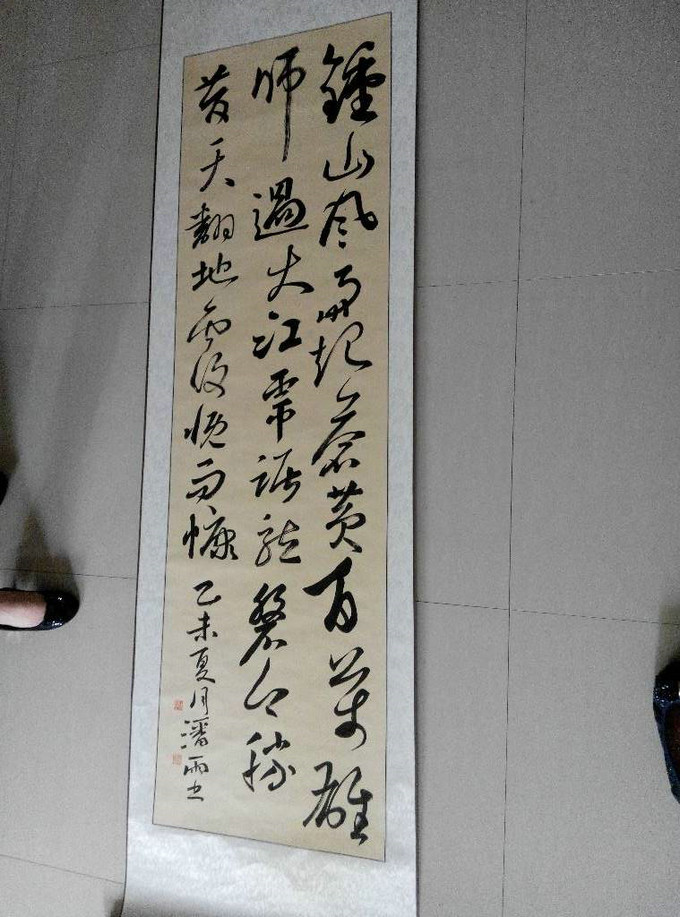 鍾山风雨起蒼黄百萬雄
师過大江虎踞龙磐今胜
昔天翻地覆慨而慷
乙未夏月潘雨书